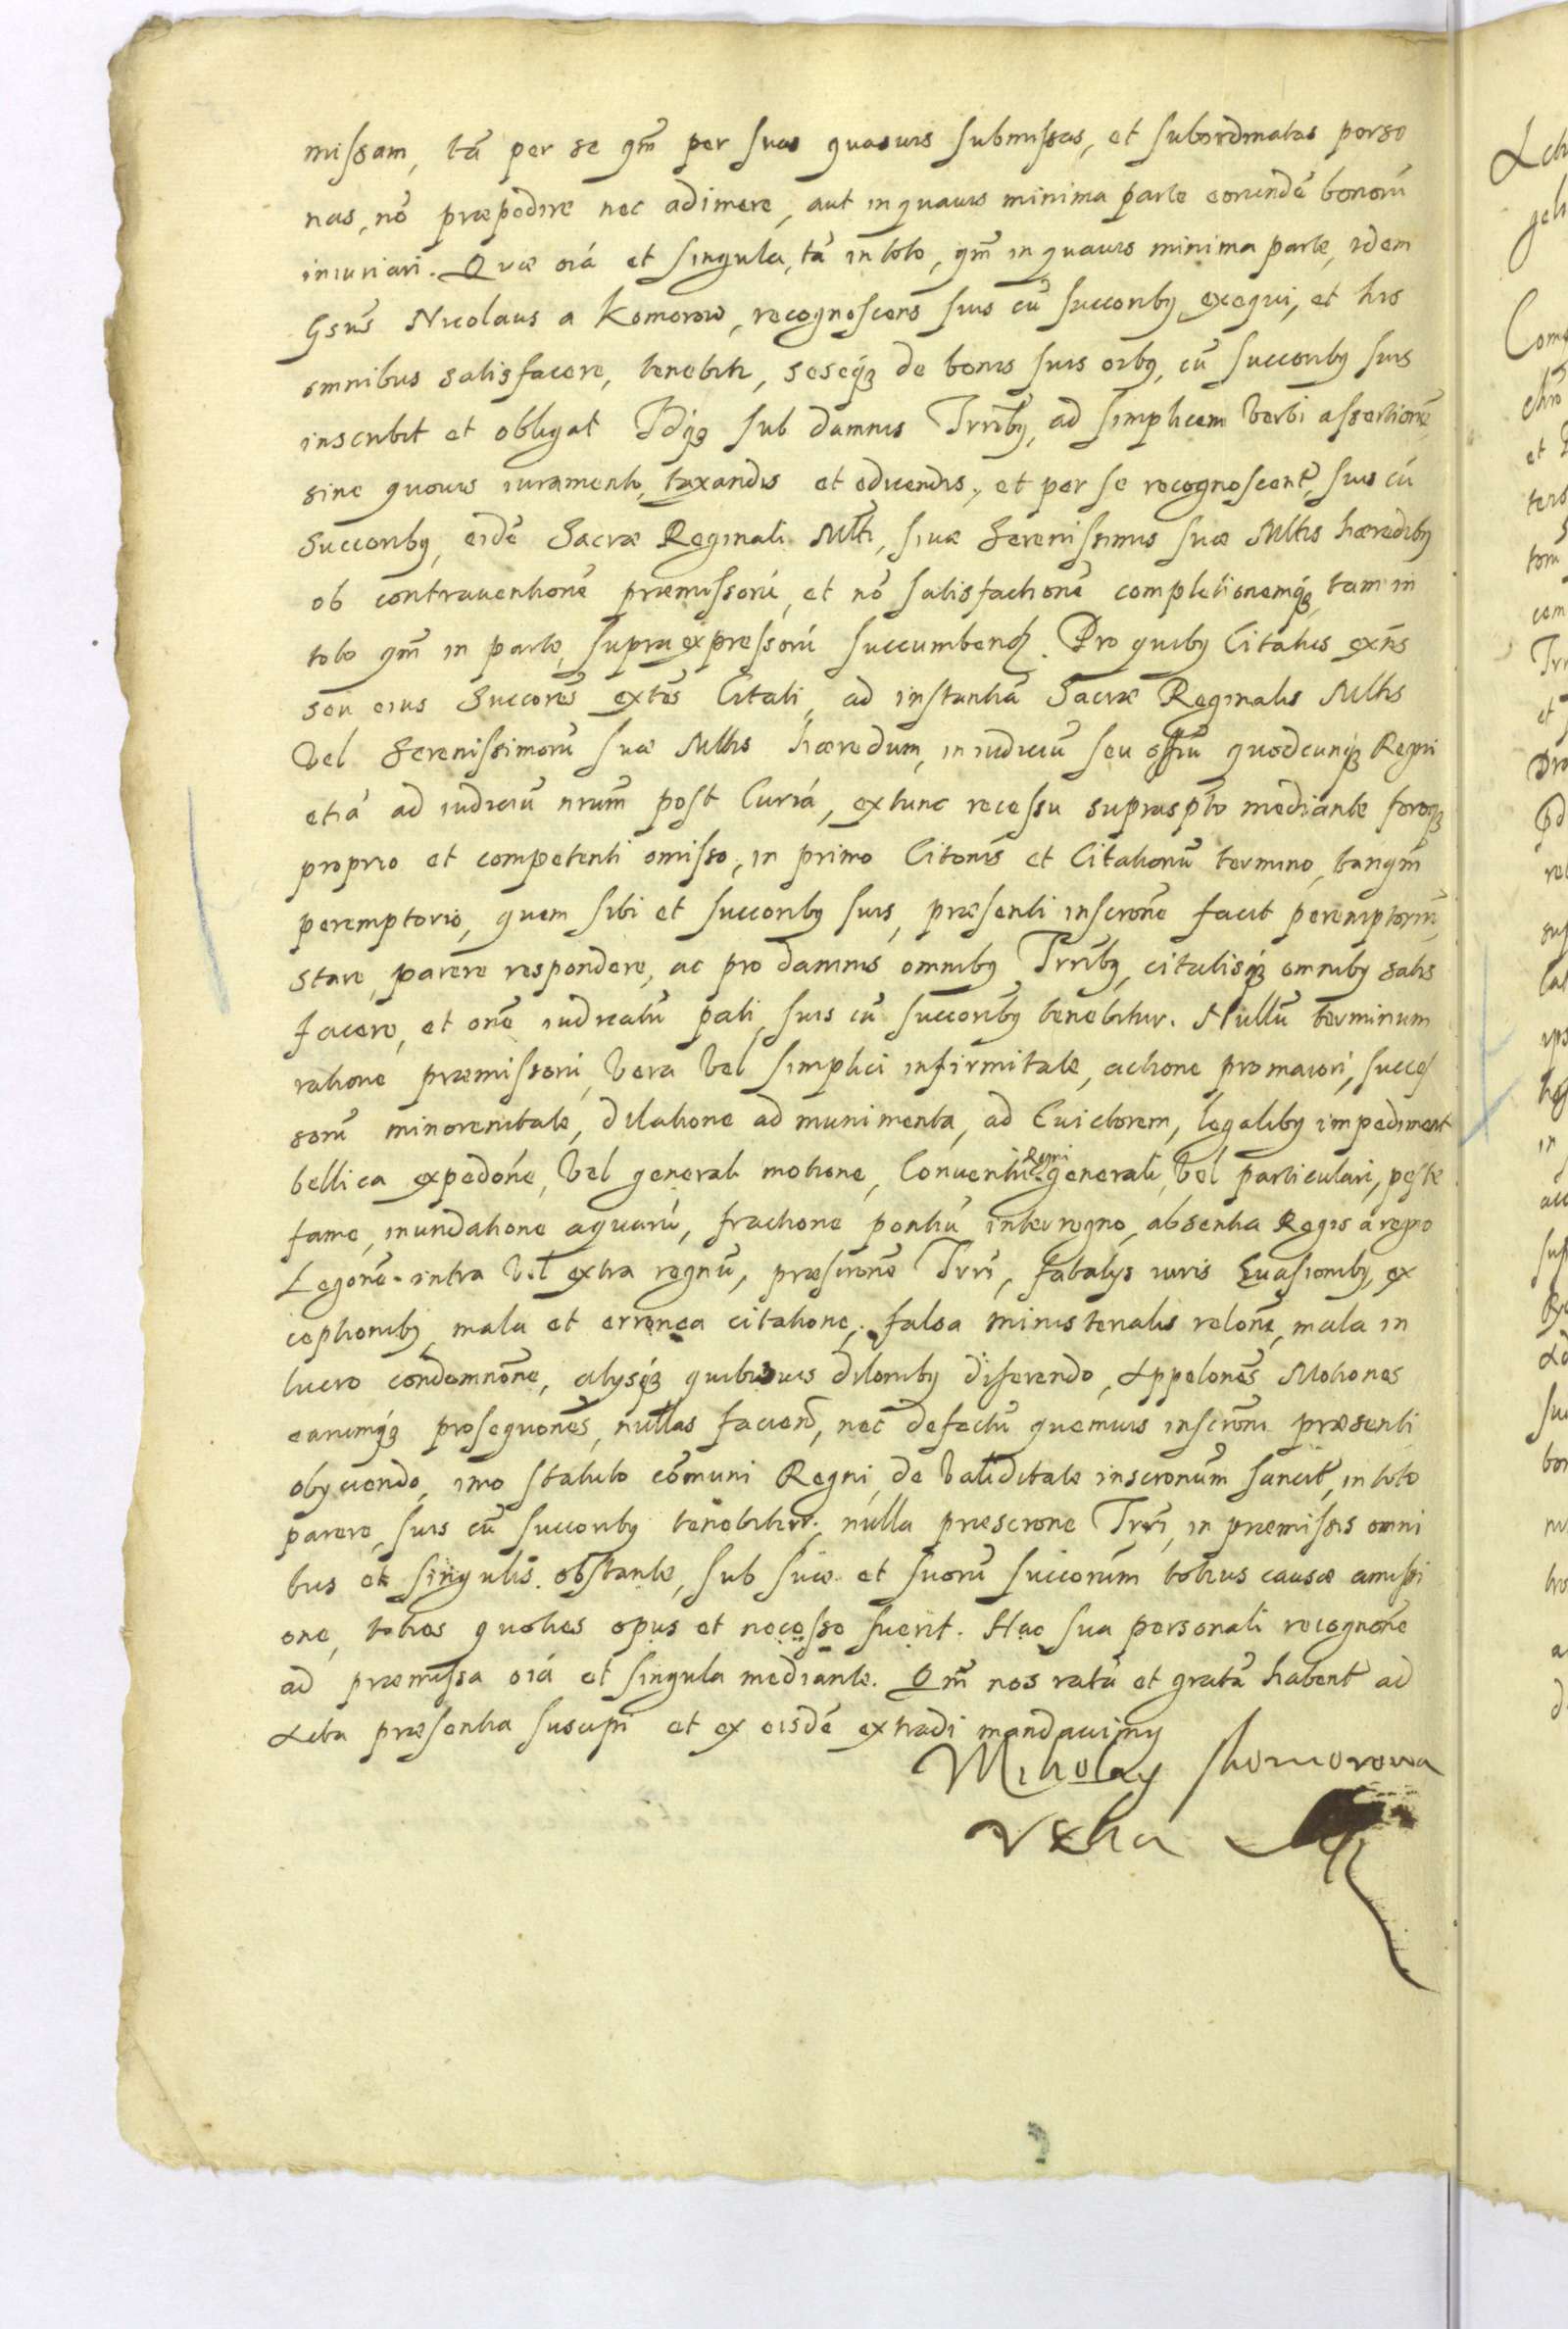 missam, tã per se qm̃ per suas quasuis submissas, et subordinatas perso
nas, nõ præpedire nec adimere, aut in quauis minima parte eorundẽ bonorũ
iniuriari. Quæ oĩa et singula, tã in toto, qm̃ in quauis minima parte, idem
Gsũs Nicolaus a Komorow, recognoscens suis cũ succoribꝰ exequi, et his
omnibus satisfacere, tenebitr, seseqꝫ de bonis suis oĩbꝰ, cũ succoribꝰ suis
inscribit et obligat Idqꝫ sub damnis Trrĩbꝰ, ad simplicem verbi assertionẽ
sine quouis iuramento, taxandis et educendis, et per se recognoscentẽ, suis cũ
Succoribꝰ, eidẽ Sacræ Reginali Mtti, siuæ Serenissimis suæ Mttis hæredibꝰ
ob contrauentionẽ præmissorũ, et nõ satisfactionẽ completionemqꝫ, tam in
toto qm̃ in parte, supra expressorũ succumbend. Pro quibꝰ Citatus exñs
seu eius Succorẽs extẽs Citati, ad instantiã Sacræ Reginalis Mttis
vel Serenissimorũ suæ Mttis hæredum, in iudiciũ seu offiũ quodcunqꝫ Regni
etiã ad iudiciũ nrũm post Curiã, extunc recessu suprasptõ mediante foroqꝫ
proprio et competenti omisso, in primo Citonĩs et Citationũ termino, tanqm̃
peremptorio, quem sibi et succoribꝰ suis, præsenti inscronẽ facit peremptoriũ,
stare, parere respondere, ac pro damnis omnibꝰ Trrĩbꝰ, citatisqꝫ omnibꝰ satis
facere, et onẽ iudicatũ pati, suis cũ succoribꝰ tenebitur. Nullũ terminum
ratione præmissorũ, vera vel simplici infirmitate, actione pro maiori, succes
sorũ minorenitate, dilatione ad munimenta, ad Euictorem, legalibꝰ impediment
bellica expedonẽ, vel generali motione, Conuentu Regni generali, vel particulari, peste
fame, inundatione aquarũ, fractione pontiũ interregno, absentia Regis a regno
Legonẽ intra vel extra regnũ, præscronẽ Trrĩ, fatalys iuris Euasionibꝰ, ex
ceptionibꝰ, mala et erronea citatione, falsa ministerialis relonẽ, mala in
lucro condemnonẽ, alysqꝫ quibusuis dilonibꝰ diferendo, Appelonẽs Motiones
earumqꝫ prosequonẽs, nullas faciend, nec defectũ quemuis inscronĩ præsenti
obyciendo, imo statuto cõmuni Regni, de validitate inscronũm sancitẽ, in toto
parere, suis cũ succoribꝰ tenebitur, nulla præscrone Trrĩ, in præmissis omni
bus et singulis obstante, sub suæ et suorũ succorũm totius causæ amissi
one, toties quoties opus et necesse fuerit. Hac sua personali recognonẽ
ad præmissa oĩa et singula mediante. Qm̃ nos ratã et gratã habentẽ ad
Acta præsentia suscipi et ex eisdẽ extradi mandauimꝰ
Mikolay Skomorowa